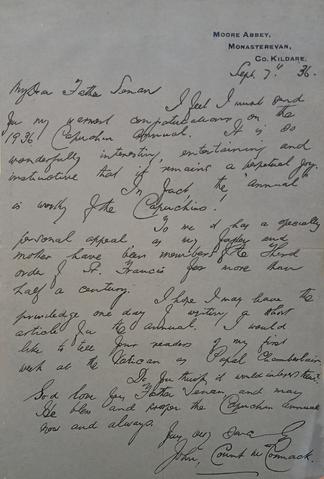 MOORE ABBEY,
MONASTEREVAN,
CO. KILDARE.
Sept 7th 36.
My dear Father Senan
I feel I must send
you my warmest congratulations on the
1936 Capuchin Annual. It is so
wonderfully interesting, entertaining and
instructive that it remains a perpetual joy.
In fact the "Annual"
is worthy of the Capuchins!
To me it has a specially
personal appeal as my father and
mother have been members of the Third
order of St. Francis for more than
half a century.
I hope I may have the
privilege one day of writing a short
article for the annual. I would
like to tell your readers of my first
week at the Vatican as Papal Chamberlain.
Do you think it would interest them?
God love you Father Senan and may
He bless and prosper the Capuchin Annual
now and always.
John, Count McCormack.